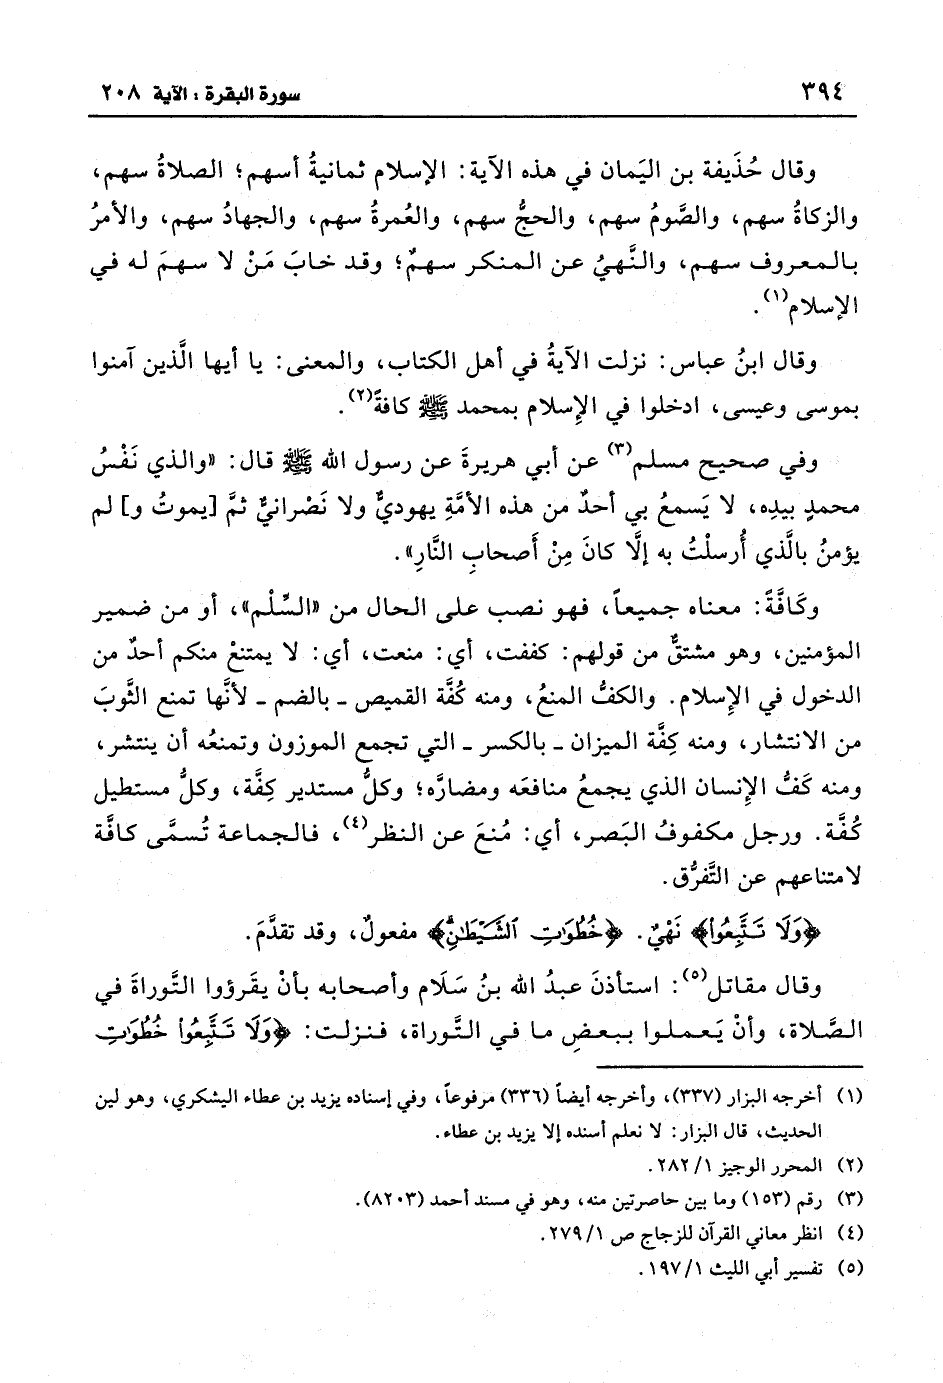 ٣٩٤ سورة البقرة : الآية ٢٠٨
وقال حُذَيفة بن اليَمان في هذه الآية: الإسلام ثمانيةُ أسهم؛ الصلاةُ سهم،
والزكاةُ سهم، والصَّومُ سهم، والحجُّ سهم، والعُمرةُ سهم، والجهادُ سهم، والأمرُ
بالمعروف سهم، والنَّهيُ عن المنكر سهمٌ؛ وقد خابَ مَنْ لا سهمَ له في
الإسلام(١).
وقال ابنُ عباس: نزلت الآيةُ في أهل الكتاب، والمعنى: يا أيها الَّذين آمنوا
بموسى وعيسى، ادخلوا في الإسلام بمحمد ﷺ كافةً(٢).
وفي صحيح مسلم(٣) عن أبي هريرةَ عن رسول الله ﷺ قال: «والذي نَفْسُ
محمدٍ بيدِه، لا يَسمعُ بي أحدٌ من هذه الأمَّةِ يهوديٌّ ولا نَصْرانيٌّ ثمَّ [يموتُ و] لم
يؤمنُ بالَّذي أُرسلْتُ به إلَّا كانَ مِنْ أَصحابِ النَّارِ».
وكَافَّةً: معناه جميعاً، فهو نصب على الحال من «السِّلْم»، أو من ضمير
المؤمنين، وهو مشتقٌّ من قولهم: كففت، أي: منعت، أي: لا يمتنعْ منكم أحدٌ من
الدخول في الإسلام. والكفُّ المنعُ، ومنه كُفَّة القميص ـ بالضم ـ لأنَّها تمنع الثَّوبَ
من الانتشار، ومنه كِفَّة الميزان ـ بالكسر ـ التي تجمع الموزون وتمنعُه أن ينتشر،
ومنه كَفُّ الإنسان الذي يجمعُ منافعَه ومضارَّه؛ وكلُّ مستدير كِفَّة، وكلُّ مستطيل
كُفَّة. ورجل مكفوفُ البَصر، أي: مُنعَ عن النظر(٤)، فالجماعة تُسمَّى كافَّة
لامتناعهم عن التَّفرُّق.
﴿وَلَا تَتَّبِعُوا۟﴾ نَهْيٌ. ﴿خُطُوَٰتِ ٱلشَّيْطَٰنِ﴾ مفعولٌ، وقد تقدَّمَ.
وقال مقاتل(٥): استأذنَ عبدُ الله بنُ سَلَام وأصحابه بأنْ يقرؤوا التَّوراةَ في
الصَّلاة، وأنْ يَعملوا ببعضِ ما في التَّوراة، فنزلت: ﴿وَلَا تَتَّبِعُوا۟ خُطُوَٰتِ
(١) أخرجه البزار (٣٣٧)، وأخرجه أيضاً (٣٣٦) مرفوعاً، وفي إسناده يزيد بن عطاء اليشكري، وهو لين
الحديث، قال البزار: لا نعلم أسنده إلا يزيد بن عطاء.
(٢) المحرر الوجيز ١/ ٢٨٢.
(٣) رقم (١٥٣) وما بين حاصرتين منه، وهو في مسند أحمد (٨٢٠٣).
(٤) انظر معاني القرآن للزجاج ص ١/ ٢٧٩.
(٥) تفسير أبي الليث ١/ ١٩٧.